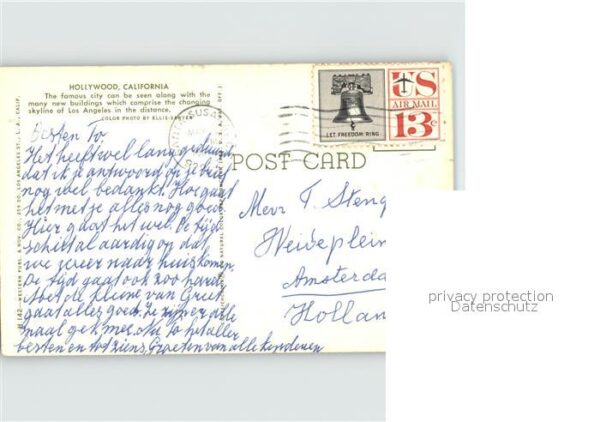 HOLLYWOOD, CALIFORNIA
The famous city can be seen along with the
many new buildings which comprise the changing
skyline of Los Angeles in the distance.
COLOR PHOTO BY ELLIS-SAWYER
Besten To
Het heeft wel lang geduurd
dat ik je antwoord op je brief
nog wel bedankt. Hoe gaat
het met je alles nog goed
Hier gaat het wel. De tijd
schiet al aardig op dat
we weer naar huis komen.
De tijd gaat ook zoo hard
Met de kleine van Greet
gaat alles goed. Ze zijn er alle
maal gek mee. Nu To het aller
besten en tot ziens, Groeten van alle kinderen
POST CARD
LET FREEDOM RING
US
AIR MAIL
13c
Mevr T. Steng
Weideplein
Amsterda
Hollan
privacy protection
Datenschutz